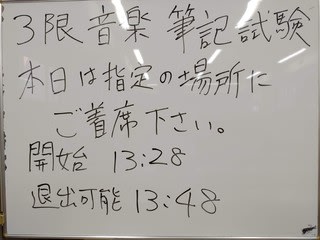 3限 音楽 筆記試験
本日は指定の場所に
ご着席下さい。
開始 13:28
退出可能 13:48